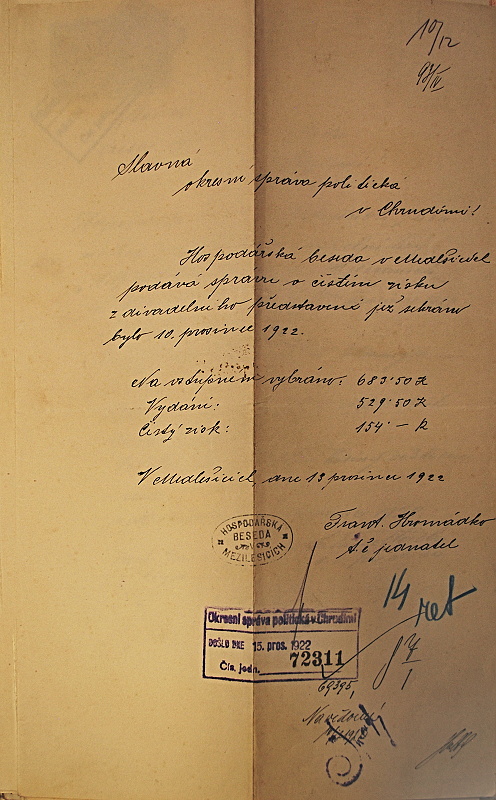 10/12
Slavná
okresní správa politická
v Chrudimi!
Hospodářská beseda v Medlešicích
podává správu o čistém zisku
z divadelního představení jež sehráno
bylo 10. prosince 1922.
Na vstupném vybráno: 683·50 K
Vydání: 529·50 K
Čistý zisk: 154·– K
V Medlešicích, dne 13 prosince 1922
Frant. Hromádko
t. č. jednatel
HOSPODÁŘSKÁ
BESEDA
MEZILESICÍCH
14
ret
Okresní správa politická v Chrudimi
DOŠLO DNE 15. pros. 1922
Čís. jedn. 72311
69395,